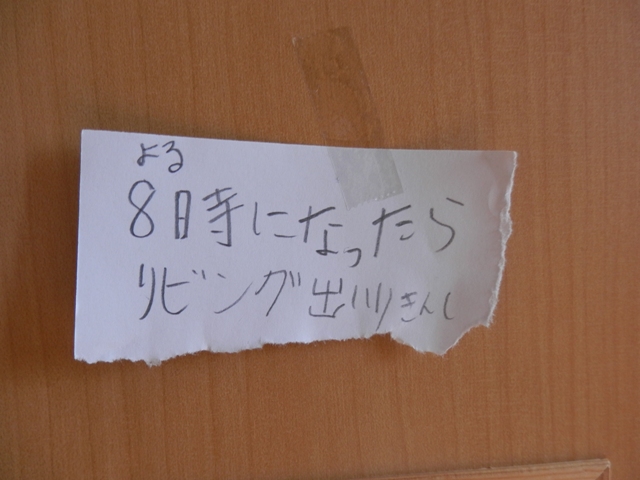 よる
8時になったら
リビング出入りきんし